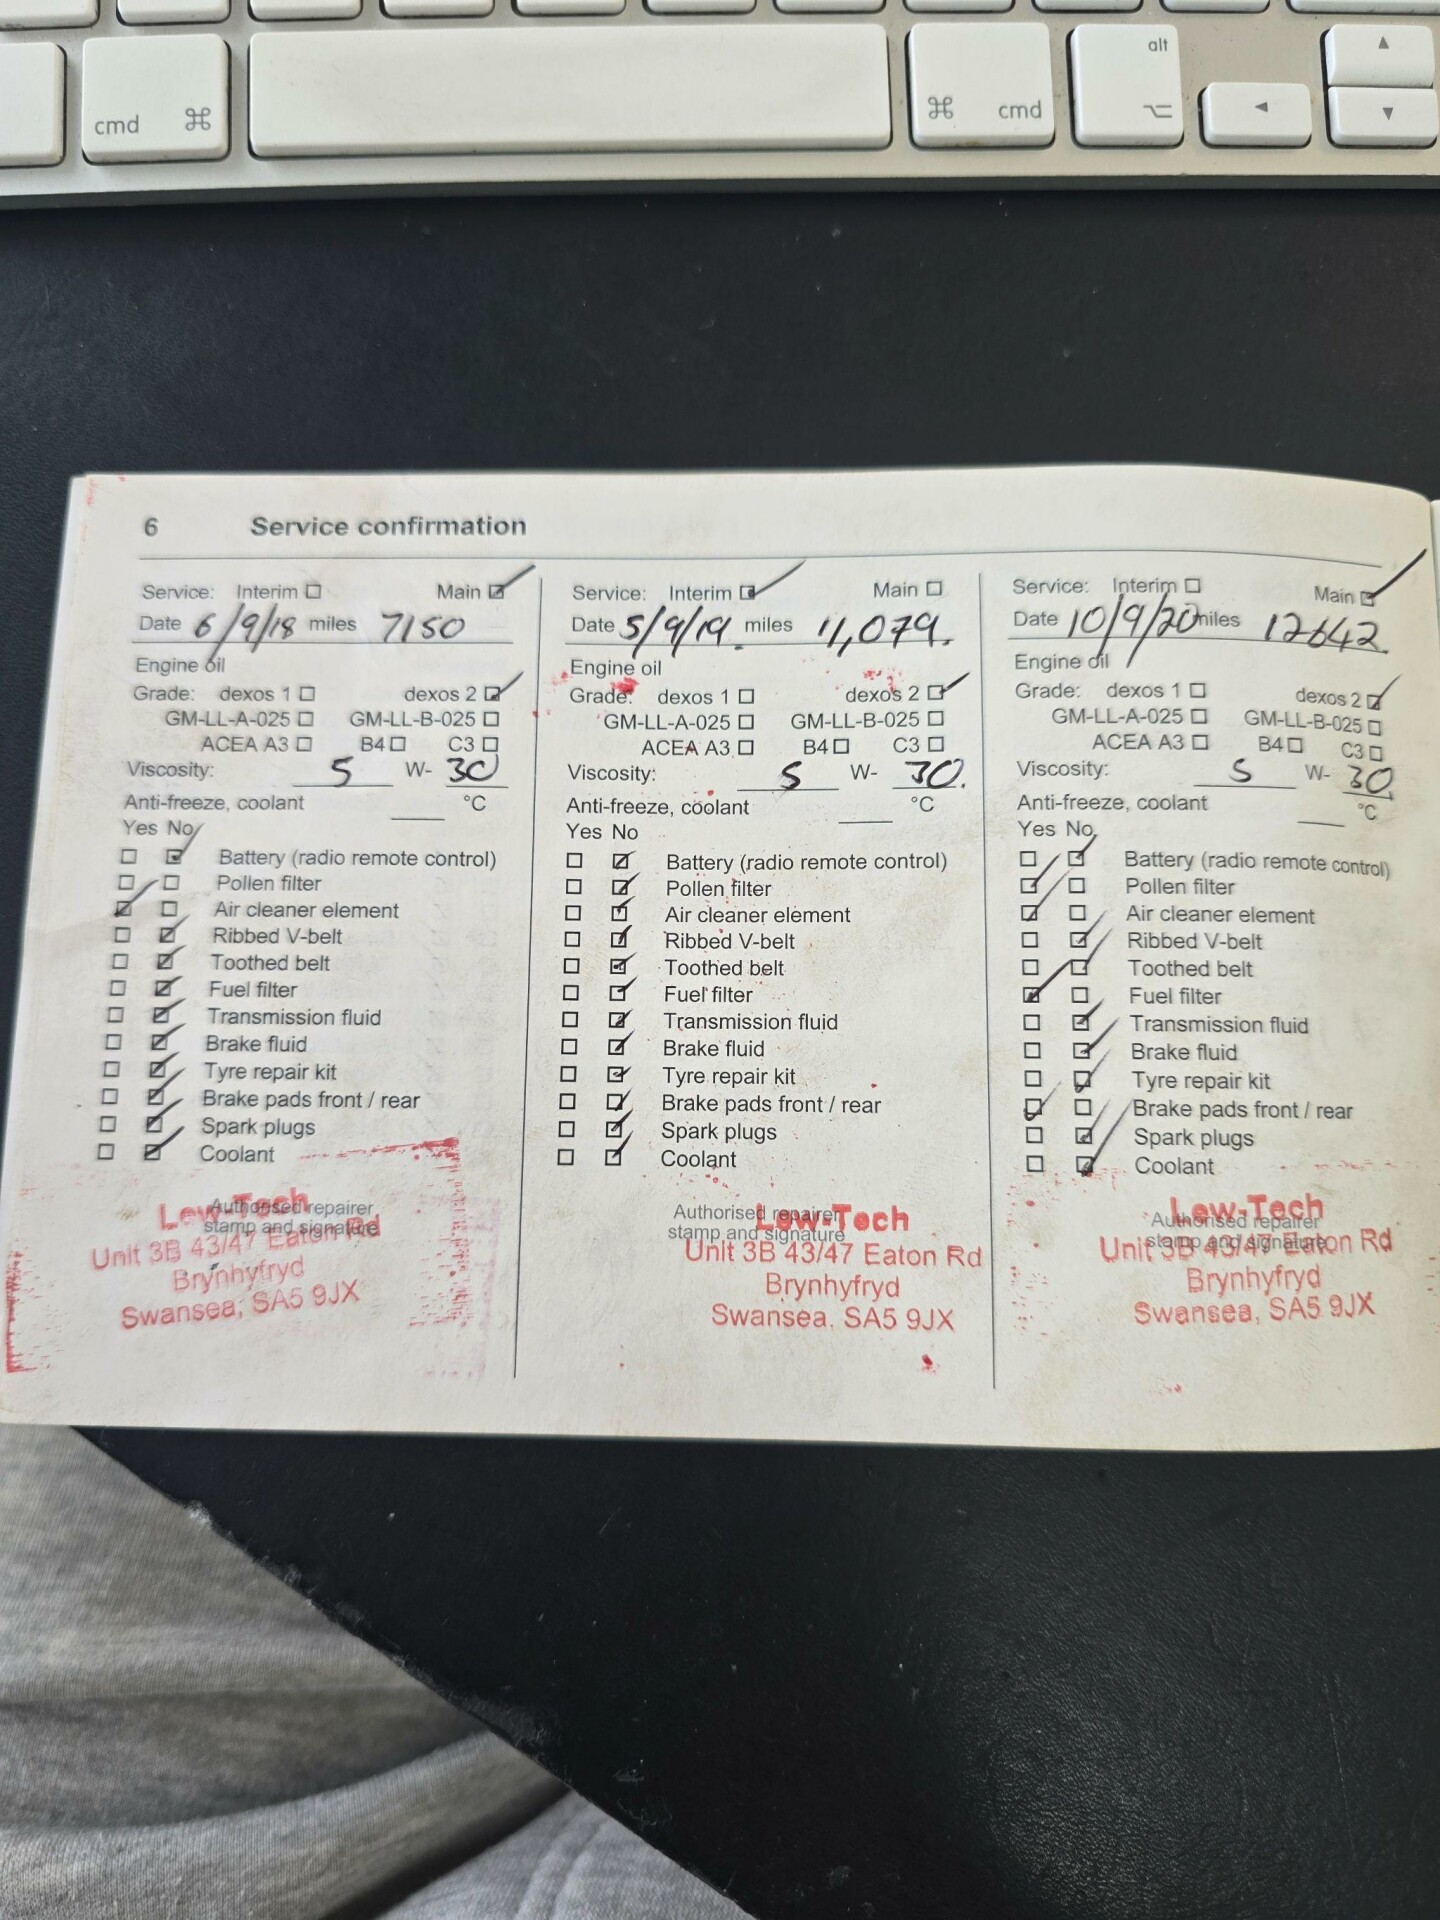 alt
cmd ⌘
⌘ cmd
⌥
◄
▲
▼
6 Service confirmation
Service: Interim ☐ Main ☑
Date 6/9/18 miles 7150
Engine oil
Grade: dexos 1 ☐ dexos 2 ☑
GM-LL-A-025 ☐ GM-LL-B-025 ☐
ACEA A3 ☐ B4 ☐ C3 ☐
Viscosity: 5 W- 30
Anti-freeze, coolant ___ °C
Yes No
☐ ☑ Battery (radio remote control)
☐ ☐ Pollen filter
☑ ☐ Air cleaner element
☐ ☑ Ribbed V-belt
☐ ☑ Toothed belt
☐ ☑ Fuel filter
☐ ☑ Transmission fluid
☐ ☑ Brake fluid
☐ ☑ Tyre repair kit
☐ ☑ Brake pads front / rear
☐ ☑ Spark plugs
☐ ☑ Coolant
Authorised repairer
stamp and signature
Low-Tech
Unit 3B 43/47 Eaton Rd
Brynhyfryd
Swansea, SA5 9JX
Service: Interim ☑ Main ☐
Date 5/9/19. miles 11,079.
Engine oil
Grade: dexos 1 ☐ dexos 2 ☑
GM-LL-A-025 ☐ GM-LL-B-025 ☐
ACEA A3 ☐ B4 ☐ C3 ☐
Viscosity: 5 W- 30.
Anti-freeze, coolant ___ °C
Yes No
☐ ☑ Battery (radio remote control)
☐ ☑ Pollen filter
☐ ☑ Air cleaner element
☐ ☑ Ribbed V-belt
☐ ☑ Toothed belt
☐ ☑ Fuel filter
☐ ☑ Transmission fluid
☐ ☑ Brake fluid
☐ ☑ Tyre repair kit
☐ ☑ Brake pads front / rear
☐ ☑ Spark plugs
☐ ☑ Coolant
Authorised repairer
stamp and signature
Low-Tech
Unit 3B 43/47 Eaton Rd
Brynhyfryd
Swansea, SA5 9JX
Service: Interim ☐ Main ☑
Date 10/9/20 miles 12642.
Engine oil
Grade: dexos 1 ☐ dexos 2 ☑
GM-LL-A-025 ☐ GM-LL-B-025 ☐
ACEA A3 ☐ B4 ☐ C3 ☐
Viscosity: 5 W- 30.
Anti-freeze, coolant ___ °C
Yes No
☐ ☑ Battery (radio remote control)
☑ ☐ Pollen filter
☑ ☐ Air cleaner element
☐ ☑ Ribbed V-belt
☐ ☑ Toothed belt
☑ ☐ Fuel filter
☐ ☑ Transmission fluid
☐ ☑ Brake fluid
☐ ☑ Tyre repair kit
☑ ☐ Brake pads front / rear
☐ ☑ Spark plugs
☐ ☑ Coolant
Authorised repairer
stamp and signature
Low-Tech
Unit 3B 43/47 Eaton Rd
Brynhyfryd
Swansea, SA5 9JX